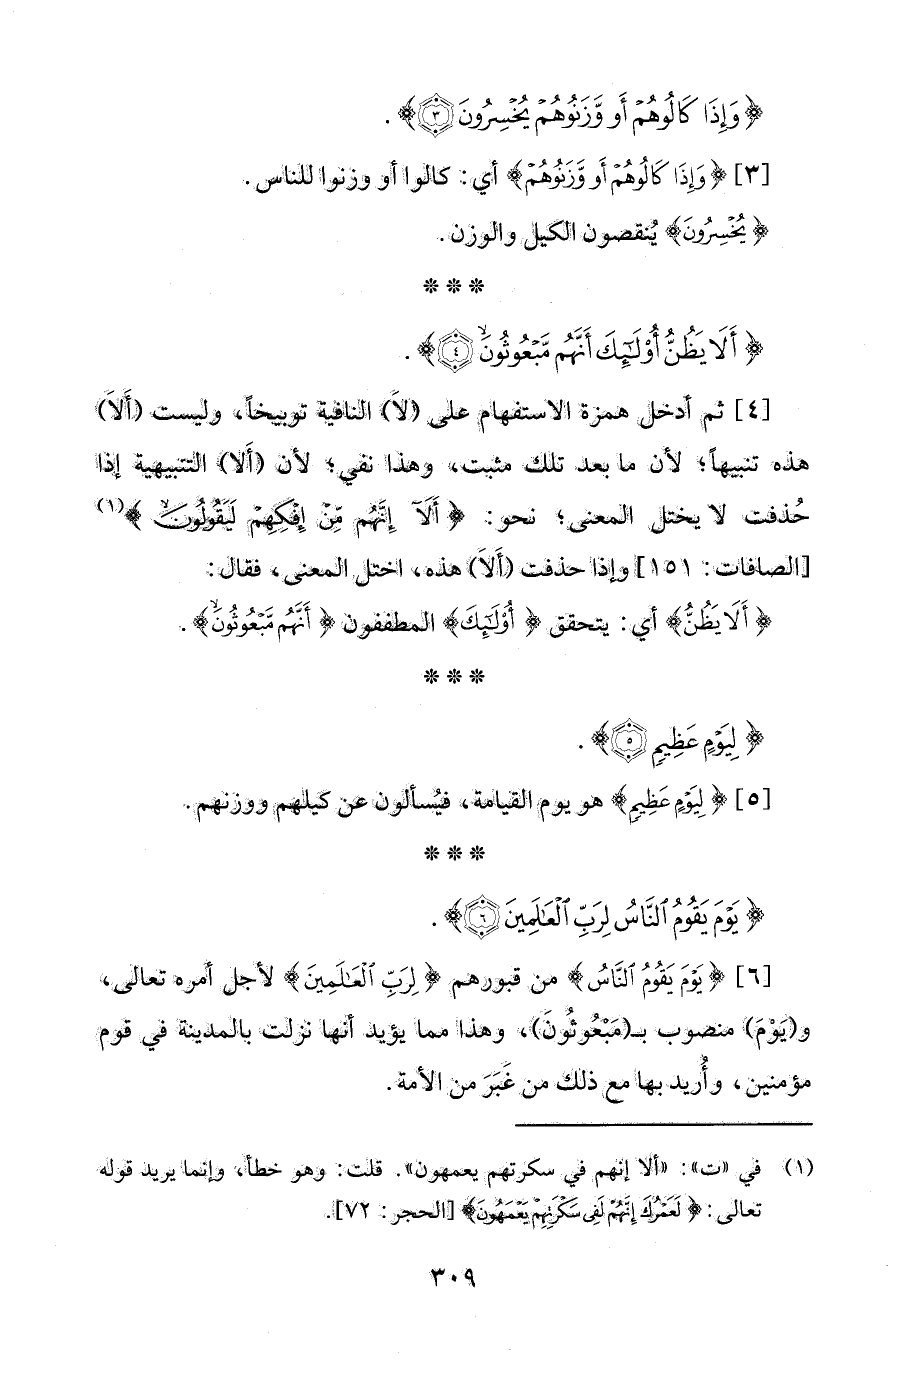 ﴿وَإِذَا كَالُوهُمْ أَو وَّزَنُوهُمْ يُخْسِرُونَ ٣﴾.
[٣] ﴿وَإِذَا كَالُوهُمْ أَو وَّزَنُوهُمْ﴾ أي: كالوا أو وزنوا للناس.
﴿يُخْسِرُونَ﴾ يُنقصون الكيل والوزن.
* * *
﴿أَلَا يَظُنُّ أُوْلَٰٓئِكَ أَنَّهُم مَّبْعُوثُونَ ٤﴾.
[٤] ثم أدخل همزة الاستفهام على (لاَ) النافية توبيخاً، وليست (أَلاَ)
هذه تنبيهاً؛ لأن ما بعد تلك مثبت، وهذا نفي؛ لأن (أَلا) التنبيهية إذا
حُذفت لا يختل المعنى؛ نحو: ﴿أَلَآ إِنَّهُم مِّنْ إِفْكِهِمْ لَيَقُولُونَ﴾(١)
[الصافات: ١٥١] وإذا حذفت (أَلاَ) هذه، اختل المعنى، فقال:
﴿أَلَا يَظُنُّ﴾ أي: يتحقق ﴿أُوْلَٰٓئِكَ﴾ المطففون ﴿أَنَّهُم مَّبْعُوثُونَ﴾.
* * *
﴿لِيَوْمٍ عَظِيمٍ ٥﴾.
[٥] ﴿لِيَوْمٍ عَظِيمٍ﴾ هو يوم القيامة، فيُسألون عن كيلهم ووزنهم.
* * *
﴿يَوْمَ يَقُومُ النَّاسُ لِرَبِّ الْعَٰلَمِينَ ٦﴾.
[٦] ﴿يَوْمَ يَقُومُ النَّاسُ﴾ من قبورهم ﴿لِرَبِّ الْعَٰلَمِينَ﴾ لأجل أمره تعالى،
و(يَوْمَ) منصوب بـ(مَبْعُوثُونَ)، وهذا مما يؤيد أنها نزلت بالمدينة في قوم
مؤمنين، وأُريد بها مع ذلك من غَبَرَ من الأمة.
(١) في «ت»: «ألا إنهم في سكرتهم يعمهون». قلت: وهو خطأ، وإنما يريد قوله
تعالى: ﴿لَعَمْرُكَ إِنَّهُمْ لَفِي سَكْرَتِهِمْ يَعْمَهُونَ﴾ [الحجر: ٧٢].
٣٠٩